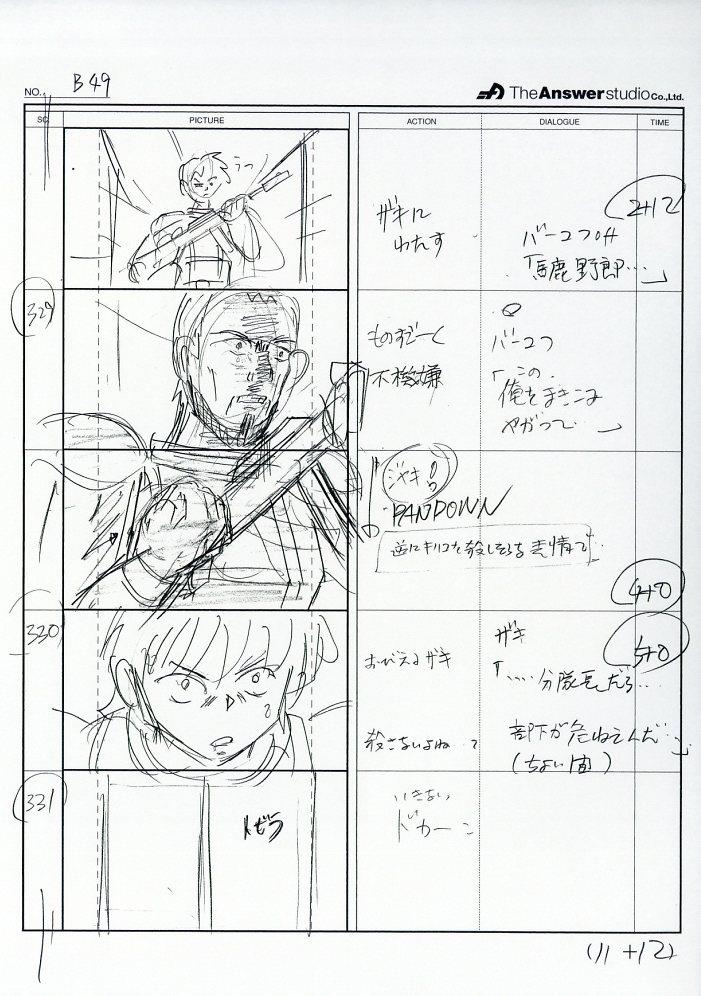 NO. B49
The Answer studio Co.,Ltd.
SC PICTURE ACTION DIALOGUE TIME
うっ
2+12
ザキに
わたす
バーコフoff
「馬鹿野郎…」
329
ものすごーく
不機嫌
バーコフ
「この
俺をまきこみ
やがって…」
ジャキ
PANDOWN
逆にキリコを殺しそうな表情で
4+0
330
5+0
おびえるザキ
ザキ
「……分隊長だろ…
殺さないよね…?
部下が危ねえんだ…」
(ちょい間)
331
トビラ
いきなり
ドカーン
(11+12)